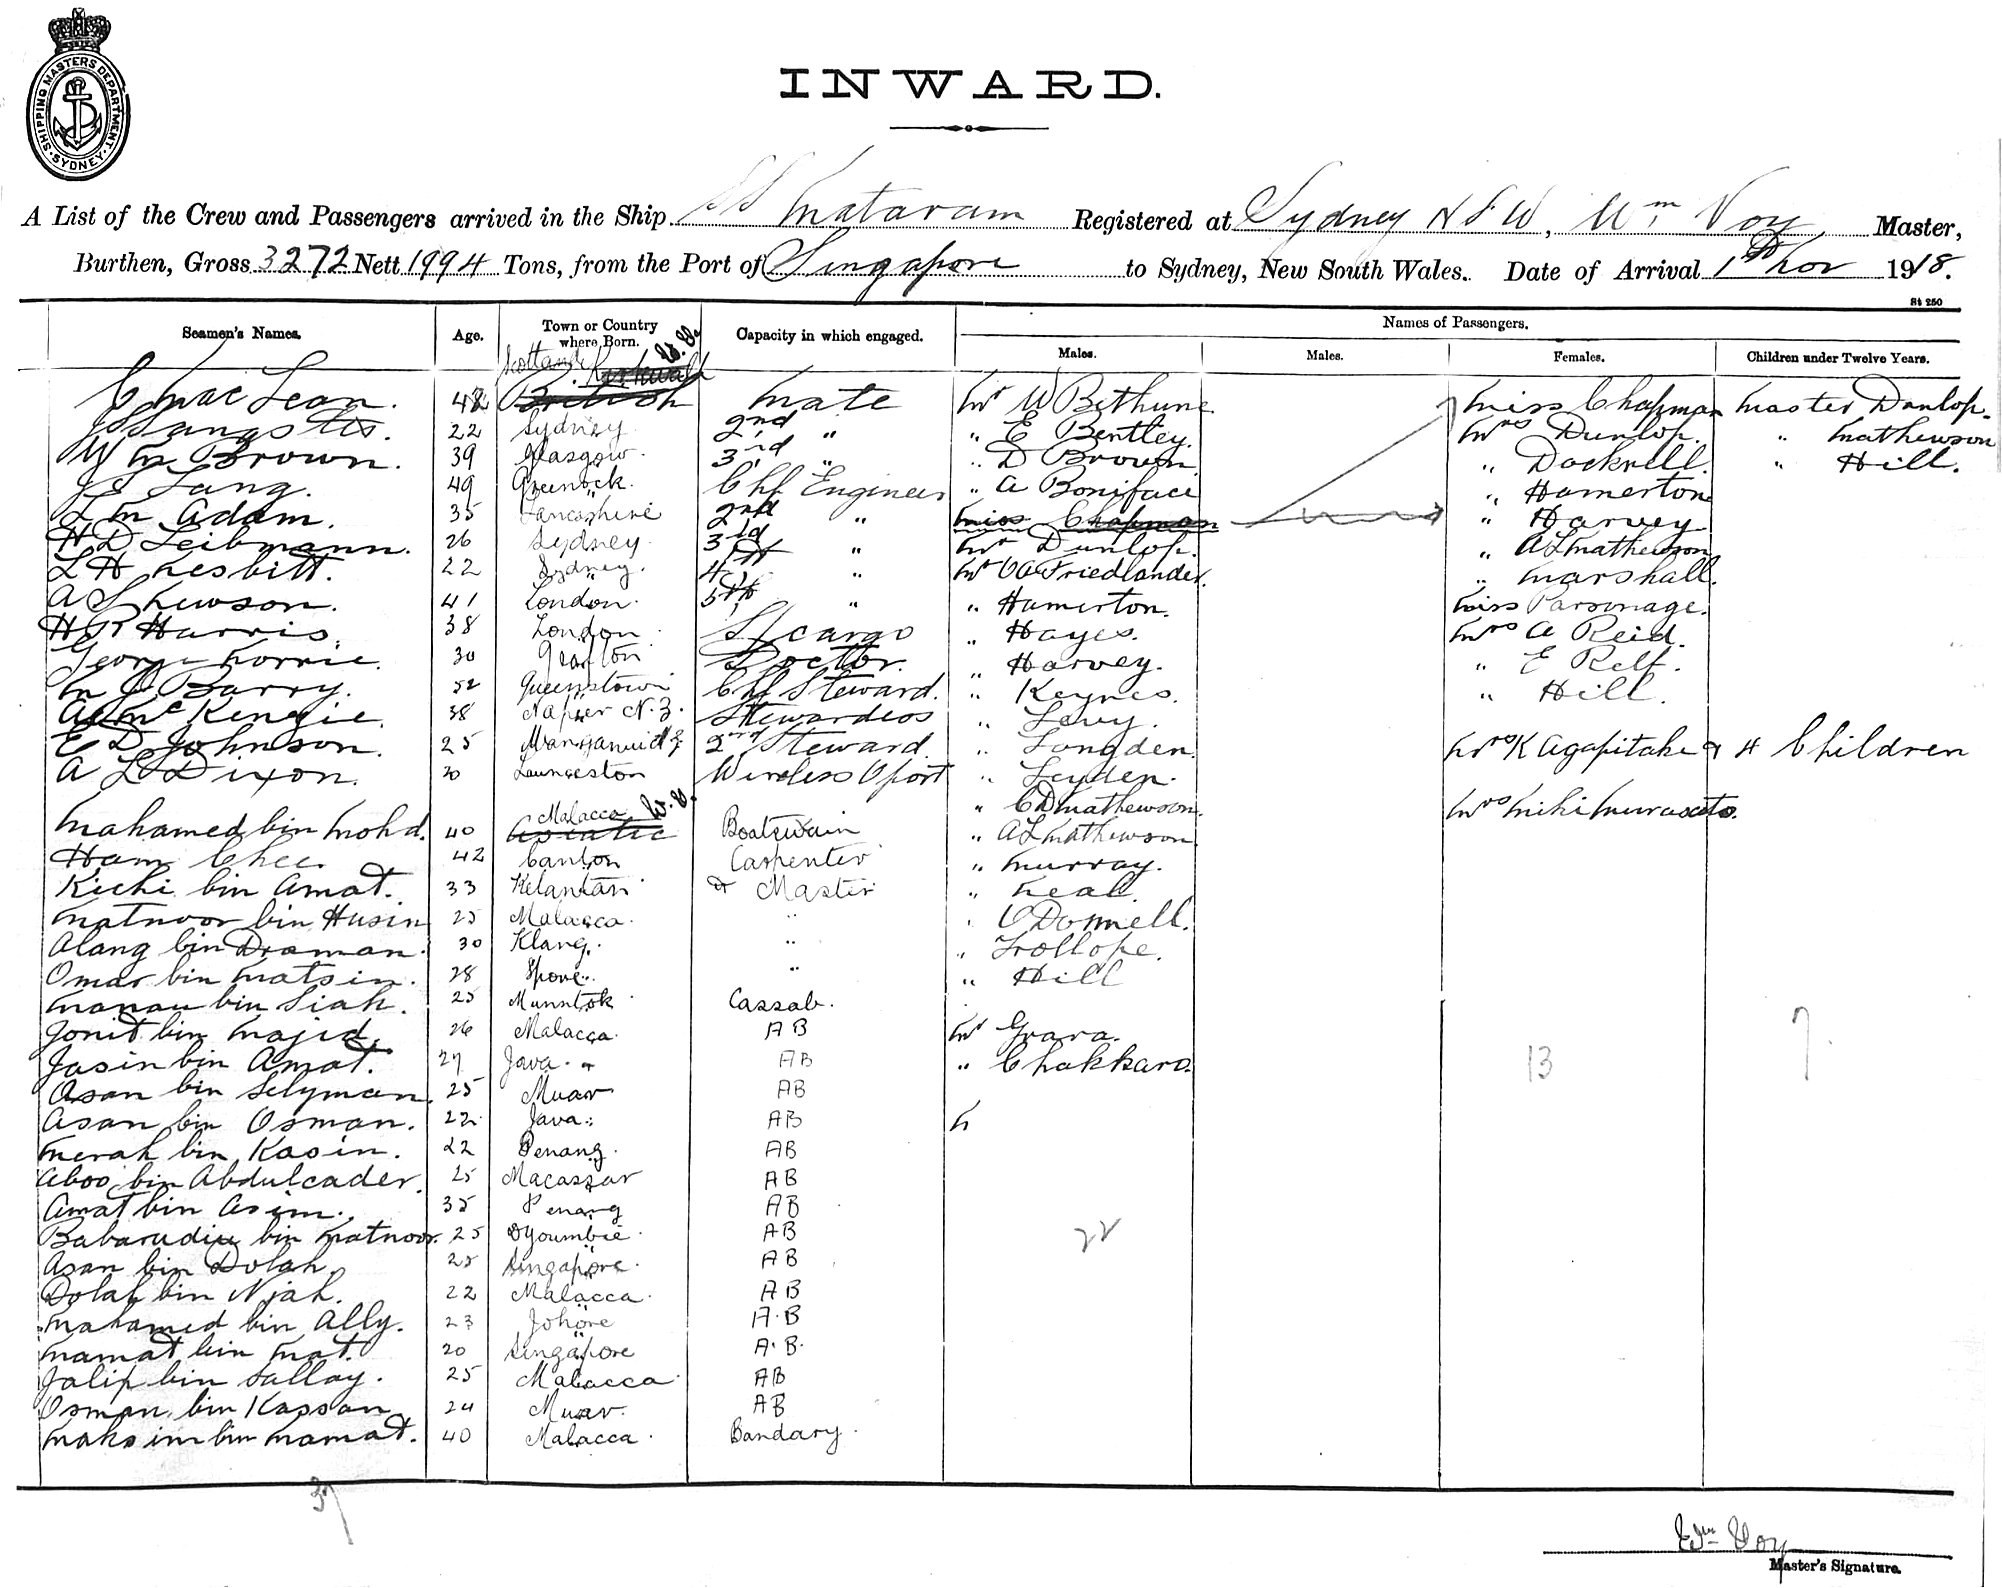 SHIPPING MASTERS DEPARTMENT. SYDNEY.
INWARD.
A List of the Crew and Passengers arrived in the Ship SS Mataram Registered at Sydney NSW, Wm Voy Master,
Burthen, Gross 3272 Nett 1994 Tons, from the Port of Singapore to Sydney, New South Wales. Date of Arrival 1st Nov 1918.
St 250
Seamen's Names. Age. Town or Country where Born. Capacity in which engaged. Names of Passengers.
Males. Males. Females. Children under Twelve Years.
Scotland Kirkwall
C MacLean. 48 British Mate Mr W Bethune Miss Chapman Master Dunlop.
22 Sydney. 2nd " " E Bentley. Mrs Dunlop. " Mathewson
Wm Brown. 39 Glasgow. 3rd " " D Brown " Docknell. " Hill.
J Lang. 49 Greenock. Chf Engineer " A Boniface " Hamerton
L M Adam. 35 Lancashire 2nd " Miss Chapman " Harvey
H D Leibmann. 26 Sydney. 3rd " Mr Dunlop. " A L Mathewson
L H Nesbitt. 22 Sydney. 4th " Mr Friedlander. " Marshall.
A S Hewson. 41 London. 5th " " Hamerton. Miss Parsonage.
H R Harris. 38 London S/cargo " Hayes. Mrs A Reid.
George Torrie. 30 Doctor. " Harvey. " E Relf.
M J Barry. 52 Queenstown Chf Steward. " Keynes. " Hill.
A McKenzie. 38 Napier N.Z. Stewardess " Levy.
E D Johnson. 25 2nd Steward. " Longden. Mrs K Agapitake & 4 Children
A L Dixon. 20 Launceston Wireless Oport " Leyden.
Malacca " C D Mathewson. Mrs Miki Murasato.
Mahamed bin Mohd. 40 Asiatic Boatswain " A L Mathewson.
Ham Chee. 42 Canton Carpenter " Murray.
Kichi bin Amat. 33 Kelantan Qr Master " Neal.
Matnoor bin Husin 25 Malacca. " " O'Donnell.
Alang bin Draman. 30 Klang. " " Trollope.
Omar bin Matsin. 28 Spore. " " Hill
Manau bin Siah. 25 Munntok Cassab.
Jonit bin Majid. 26 Malacca. AB Mr Grara.
Jasin bin Amat. 27 Java. AB " Chakkara. 13 7
Asan bin Selyman. 25 Muar AB
Asan bin Osman. 22 Java. AB
Merah bin Kasin. 22 Penang. AB
Aboo bin Abdulcader. 25 Macassar AB
Amat bin Asim. 35 Penang AB
Babarudin bin Matnoor. 25 AB 22
Asan bin Dolah. 25 Singapore. AB
Dolah bin Njah. 22 Malacca. AB
Mahamed bin Ally. 23 Johore A.B
Mamat bin Mat. 20 Singapore A.B.
Jalip bin Sallay. 25 Malacca AB
Osman bin Kassan 24 Muar. AB
Maksim bin Mamat. 40 Malacca. Bandary.
37
Wm Voy
Master's Signature.